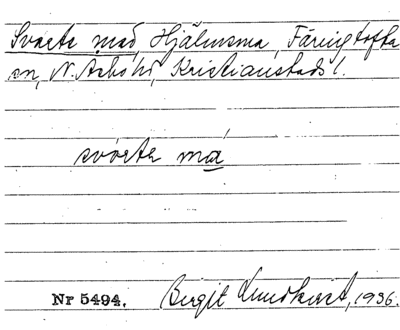 Svarta mad, Hjälmsma, Färingtofta
sn, N. Åsbo hd, Kristianstads l.
svarta má
Nr 5494. Birgit Lundkvist, 1936.